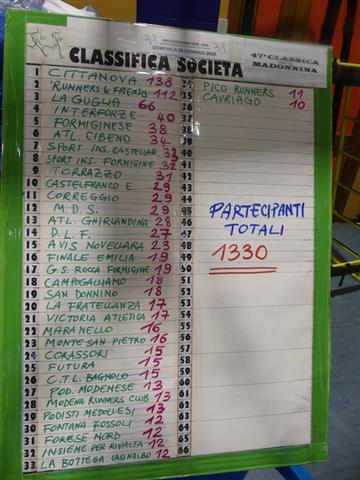 DOMENICA 26 GENNAIO 2025
CLASSIFICA SOCIETA
47ª CLASSICA
MADONNINA
1 CITTANOVA 138
2 RUNNERS & FRIENDS 112
3 LA GUGLIA 66
4 INTERFORZE 40
5 FORMIGINESE 38
6 ATL. CIBENO 34
7 SPORT INS. CASTELLAR 32
8 SPORT INS. FORMIGINE 32
9 TORRAZZO 31
10 CASTELFRANCO E. 29
11 CORREGGIO 29
12 M.D.S. 29
13 ATL. GHIRLANDINA 28
14 D.L.F. 27
15 AVIS NOVELLARA 23
16 FINALE EMILIA 19
17 G.S. ROCCA FORMIGINE 19
18 CAMPOGALLIANO 18
19 SAN DONNINO 18
20 LA FRATELLANZA 17
21 VICTORIA ATLETICA 17
22 MARANELLO 16
23 MONTE SAN PIETRO 16
24 CORASSORI 15
25 FUTURA 15
26 C.T.L. BAGNOLO 15
27 POD. MODENESE 13
28 MODENA RUNNERS CLUB 13
29 PODISTI MEDOLLESI 13
30 FONTANA FOSSOLI 12
31 FORESE NORD 12
32 INSIEME PER RIVALTA 12
33 LA BOTTEGA CASINALBO 12
34 PICO RUNNERS 11
35 CAVRIAGO 10
36
37
38
39
40
41
42
43
44
45 PARTECIPANTI
46 TOTALI
47
48 1330
49
50
51
52
53
54
55
56
57
58
59
60
61
62
63
64
65
66